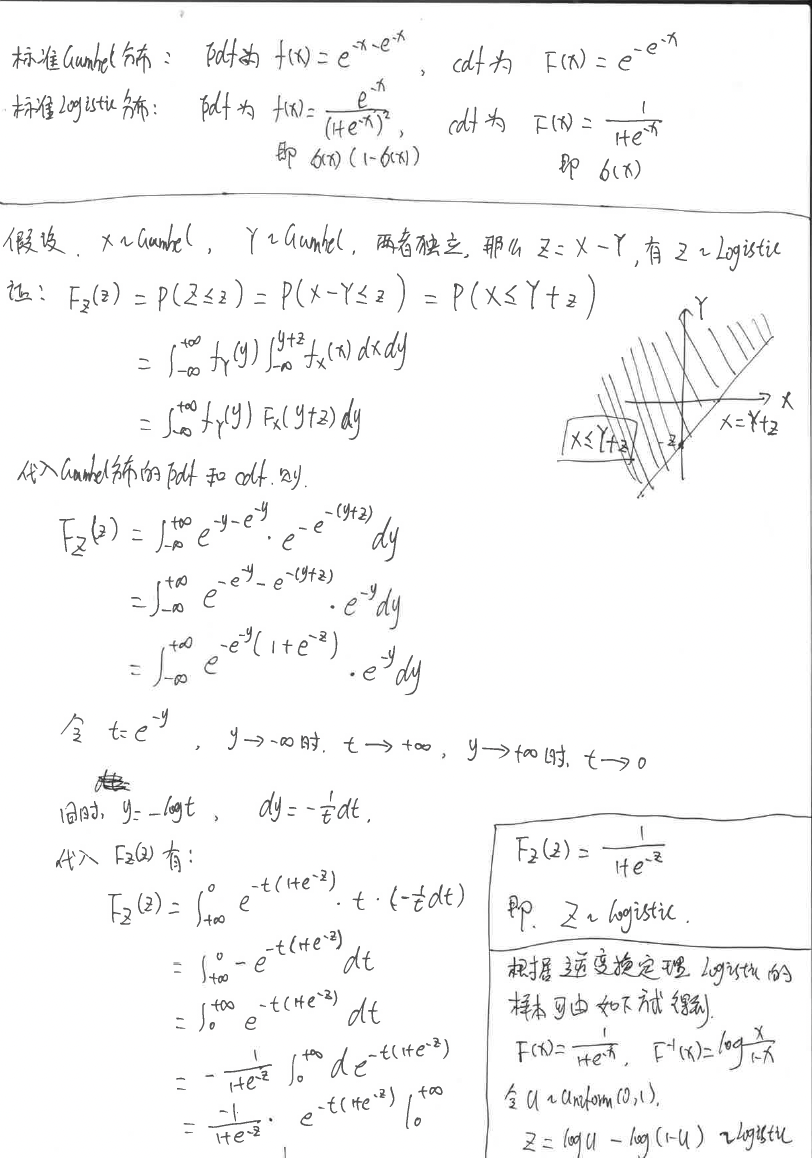 标准Gumbel分布： pdf为 f(x)=e^{-x-e^{-x}}， cdf为 F(x)=e^{-e^{-x}}
标准Logistic分布： pdf为 f(x)=\frac{e^{-x}}{(1+e^{-x})^2}， cdf为 F(x)=\frac{1}{1+e^{-x}}
即 σ(x)(1-σ(x)) 即 σ(x)
假设. X~Gumbel， Y~Gumbel, 两者独立, 那么 Z=X-Y, 有 Z~Logistic
证： F_Z(z) = P(Z≤z) = P(X-Y≤z) = P(X≤Y+z)
= ∫_{-∞}^{+∞} f_Y(y) ∫_{-∞}^{y+z} f_X(x) dx dy
= ∫_{-∞}^{+∞} f_Y(y) F_X(y+z) dy
Y
X
X=Y+z
X≤Y+z
-z
代入Gumbel分布的pdf和cdf. 则.
F_Z(z) = ∫_{-∞}^{+∞} e^{-y-e^{-y}} · e^{-e^{-(y+z)}} dy
= ∫_{-∞}^{+∞} e^{-e^{-y}-e^{-(y+z)}} · e^{-y} dy
= ∫_{-∞}^{+∞} e^{-e^{-y}(1+e^{-z})} · e^{-y} dy
令 t=e^{-y}， y→-∞时. t→+∞， y→+∞时, t→0
同时, y=-log t， dy=-\frac{1}{t}dt,
代入 F_Z(z) 有:
F_Z(z) = ∫_{+∞}^{0} e^{-t(1+e^{-z})} · t · (-\frac{1}{t}dt)
= ∫_{+∞}^{0} -e^{-t(1+e^{-z})} dt
= ∫_{0}^{+∞} e^{-t(1+e^{-z})} dt
= -\frac{1}{1+e^{-z}} ∫_{0}^{+∞} d e^{-t(1+e^{-z})}
= \frac{-1}{1+e^{-z}} · e^{-t(1+e^{-z})} |_{0}^{+∞}
F_Z(z) = \frac{1}{1+e^{-z}}
即. Z~Logistic.
根据逆变换定理 Logistic的
样本可由如下方式得到.
F(x)=\frac{1}{1+e^{-x}}, F^{-1}(x)=log\frac{x}{1-x}
令 U~Uniform(0,1).
Z=log U - log(1-U) ~Logistic